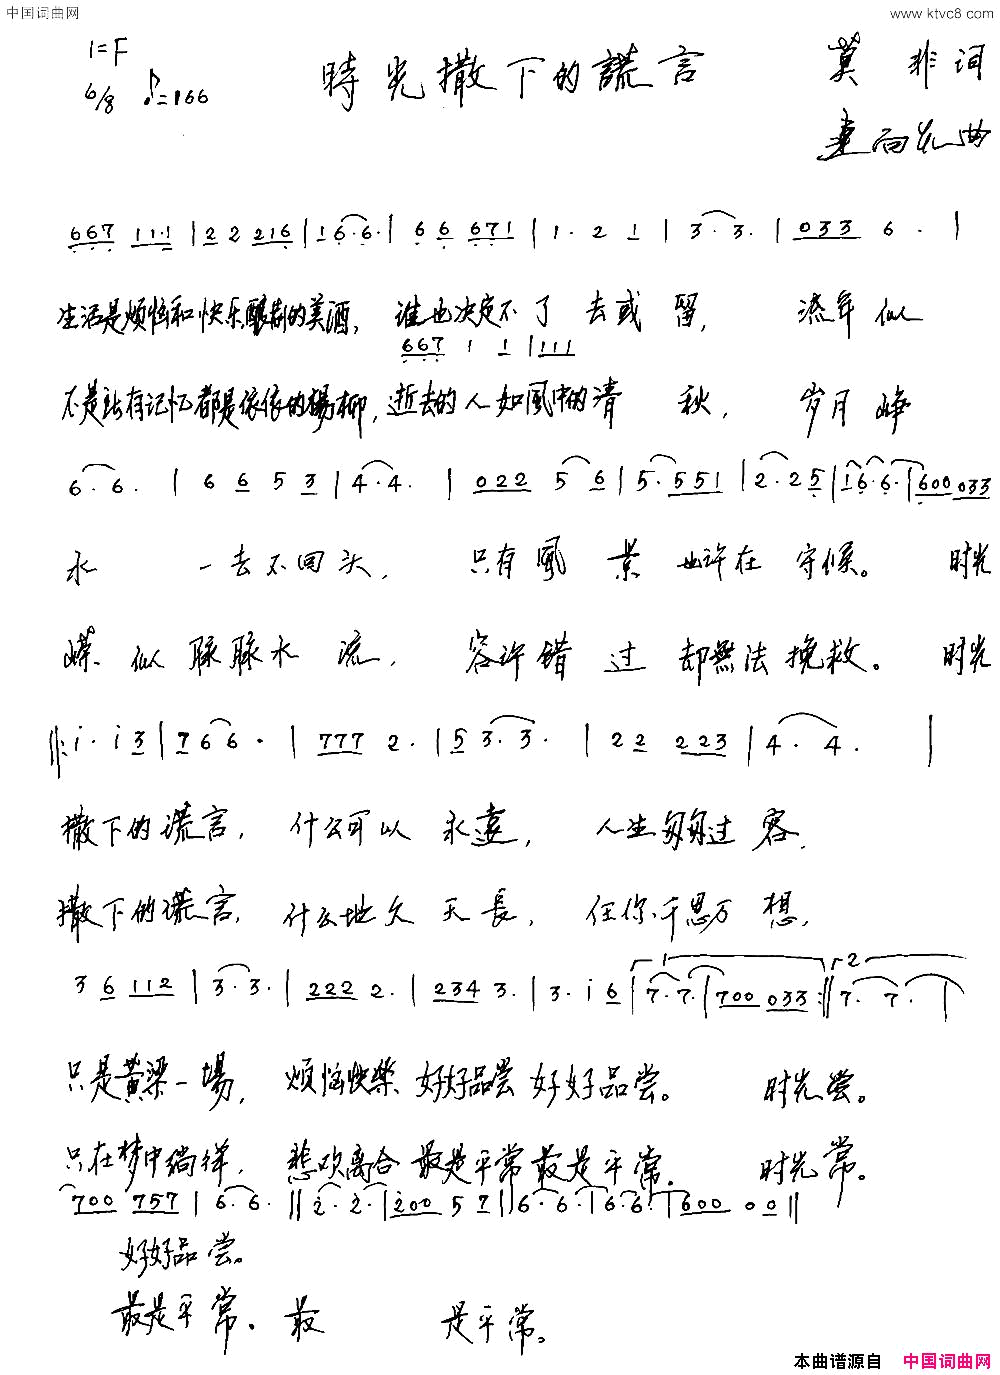 中国词曲网 www.ktvc8.com
1=F
6/8 ♪=166
時光撒下的謊言
莫非词
曲
667 111·1 | 2 2 216 | 16·6· | 6 6 671 | 1· 2 1 | 3·3· | 033 6· |
生活是烦恼和快乐酿制的美酒, 谁也决定不了去或留, 流年似
667 1 1 | 111
不是所有记忆都是依依的楊柳, 逝去的人如風中的清秋, 岁月峥
6·6· | 6 6 5 3 | 4·4· | 022 5 6 | 5·551 | 2·25 | 16·6· | 600 033
水 一去不回头, 只有風景也许在守候。 时光
嵘似脉脉水流, 容许错过却無法挽救。 时光
‖: i· i 3 | 7 6 6· | 777 2· | 5 3·3· | 22 223 | 4· 4· |
撒下的谎言, 什么可以永遠, 人生匆匆过客,
撒下的谎言, 什么地久天長, 任你千思万想,
3 6 112 | 3·3· | 222 2· | 234 3· | 3· i 6 | 1 7·7· | 700 033 :‖ 2 7· 7· |
只是黄梁一場, 烦恼快樂好好品尝好好品尝。 时光尝。
只在梦中徜徉, 悲欢离合最是平常最是平常. 时光常。
700 757 | 6·6· ‖ 2·2· | 200 5 7 ‖ 6·6· | 6·6· | 600 00 ‖
好好品尝。
最是平常. 最 是平常。
本曲谱源自 中国词曲网